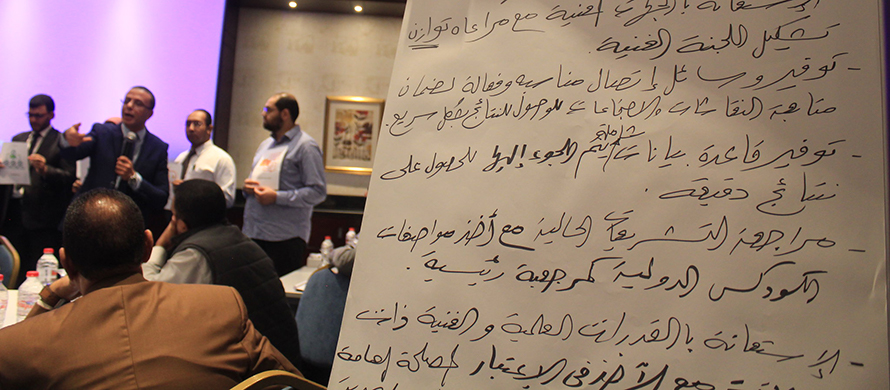 الإستعانة بالخبرات الفنية مع مراعاه توازن
تشكيل اللجنة الفنية.
- توفير وسائل إتصال مناسبه وفعالة لضمان
متابعة النقاشات والاجتماعات للوصول للنتائج بشكل سريع.
- توفير قاعدة بيانات شاملة يتم اللجوء إليها للحصول على
نتائج دقيقه.
- مراجعة التشريعات الحالية مع أخذ مواصفات
الكودكس الدولية كمرجعية رئيسية.
الإستعانة بالقدرات العلمية والفنية ذات
مع الأخذ في الإعتبار المصلحة العامة